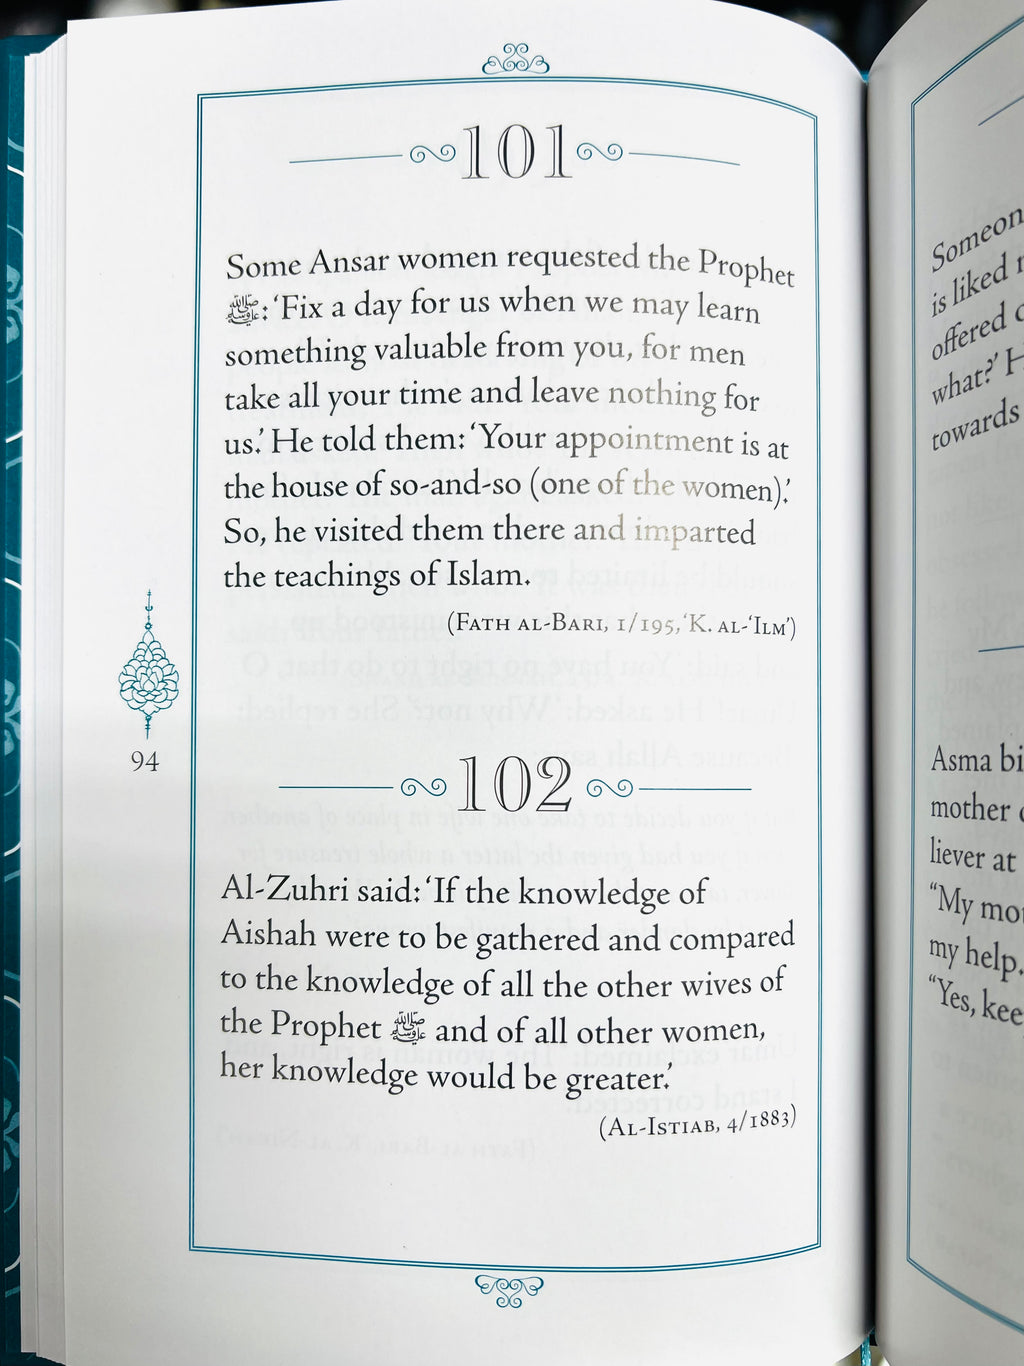 101
Some Ansar women requested the Prophet
ﷺ: ‘Fix a day for us when we may learn
something valuable from you, for men
take all your time and leave nothing for
us.’ He told them: ‘Your appointment is at
the house of so-and-so (one of the women).’
So, he visited them there and imparted
the teachings of Islam.
(Fath al-Bari, 1/195, ‘K. al-‘Ilm’)
94
102
Al-Zuhri said: ‘If the knowledge of
Aishah were to be gathered and compared
to the knowledge of all the other wives of
the Prophet ﷺ and of all other women,
her knowledge would be greater.’
(Al-Istiab, 4/1883)
is liked
offered
what?’
towards
Asma
mother
liever at
“My
my help.
“Yes,